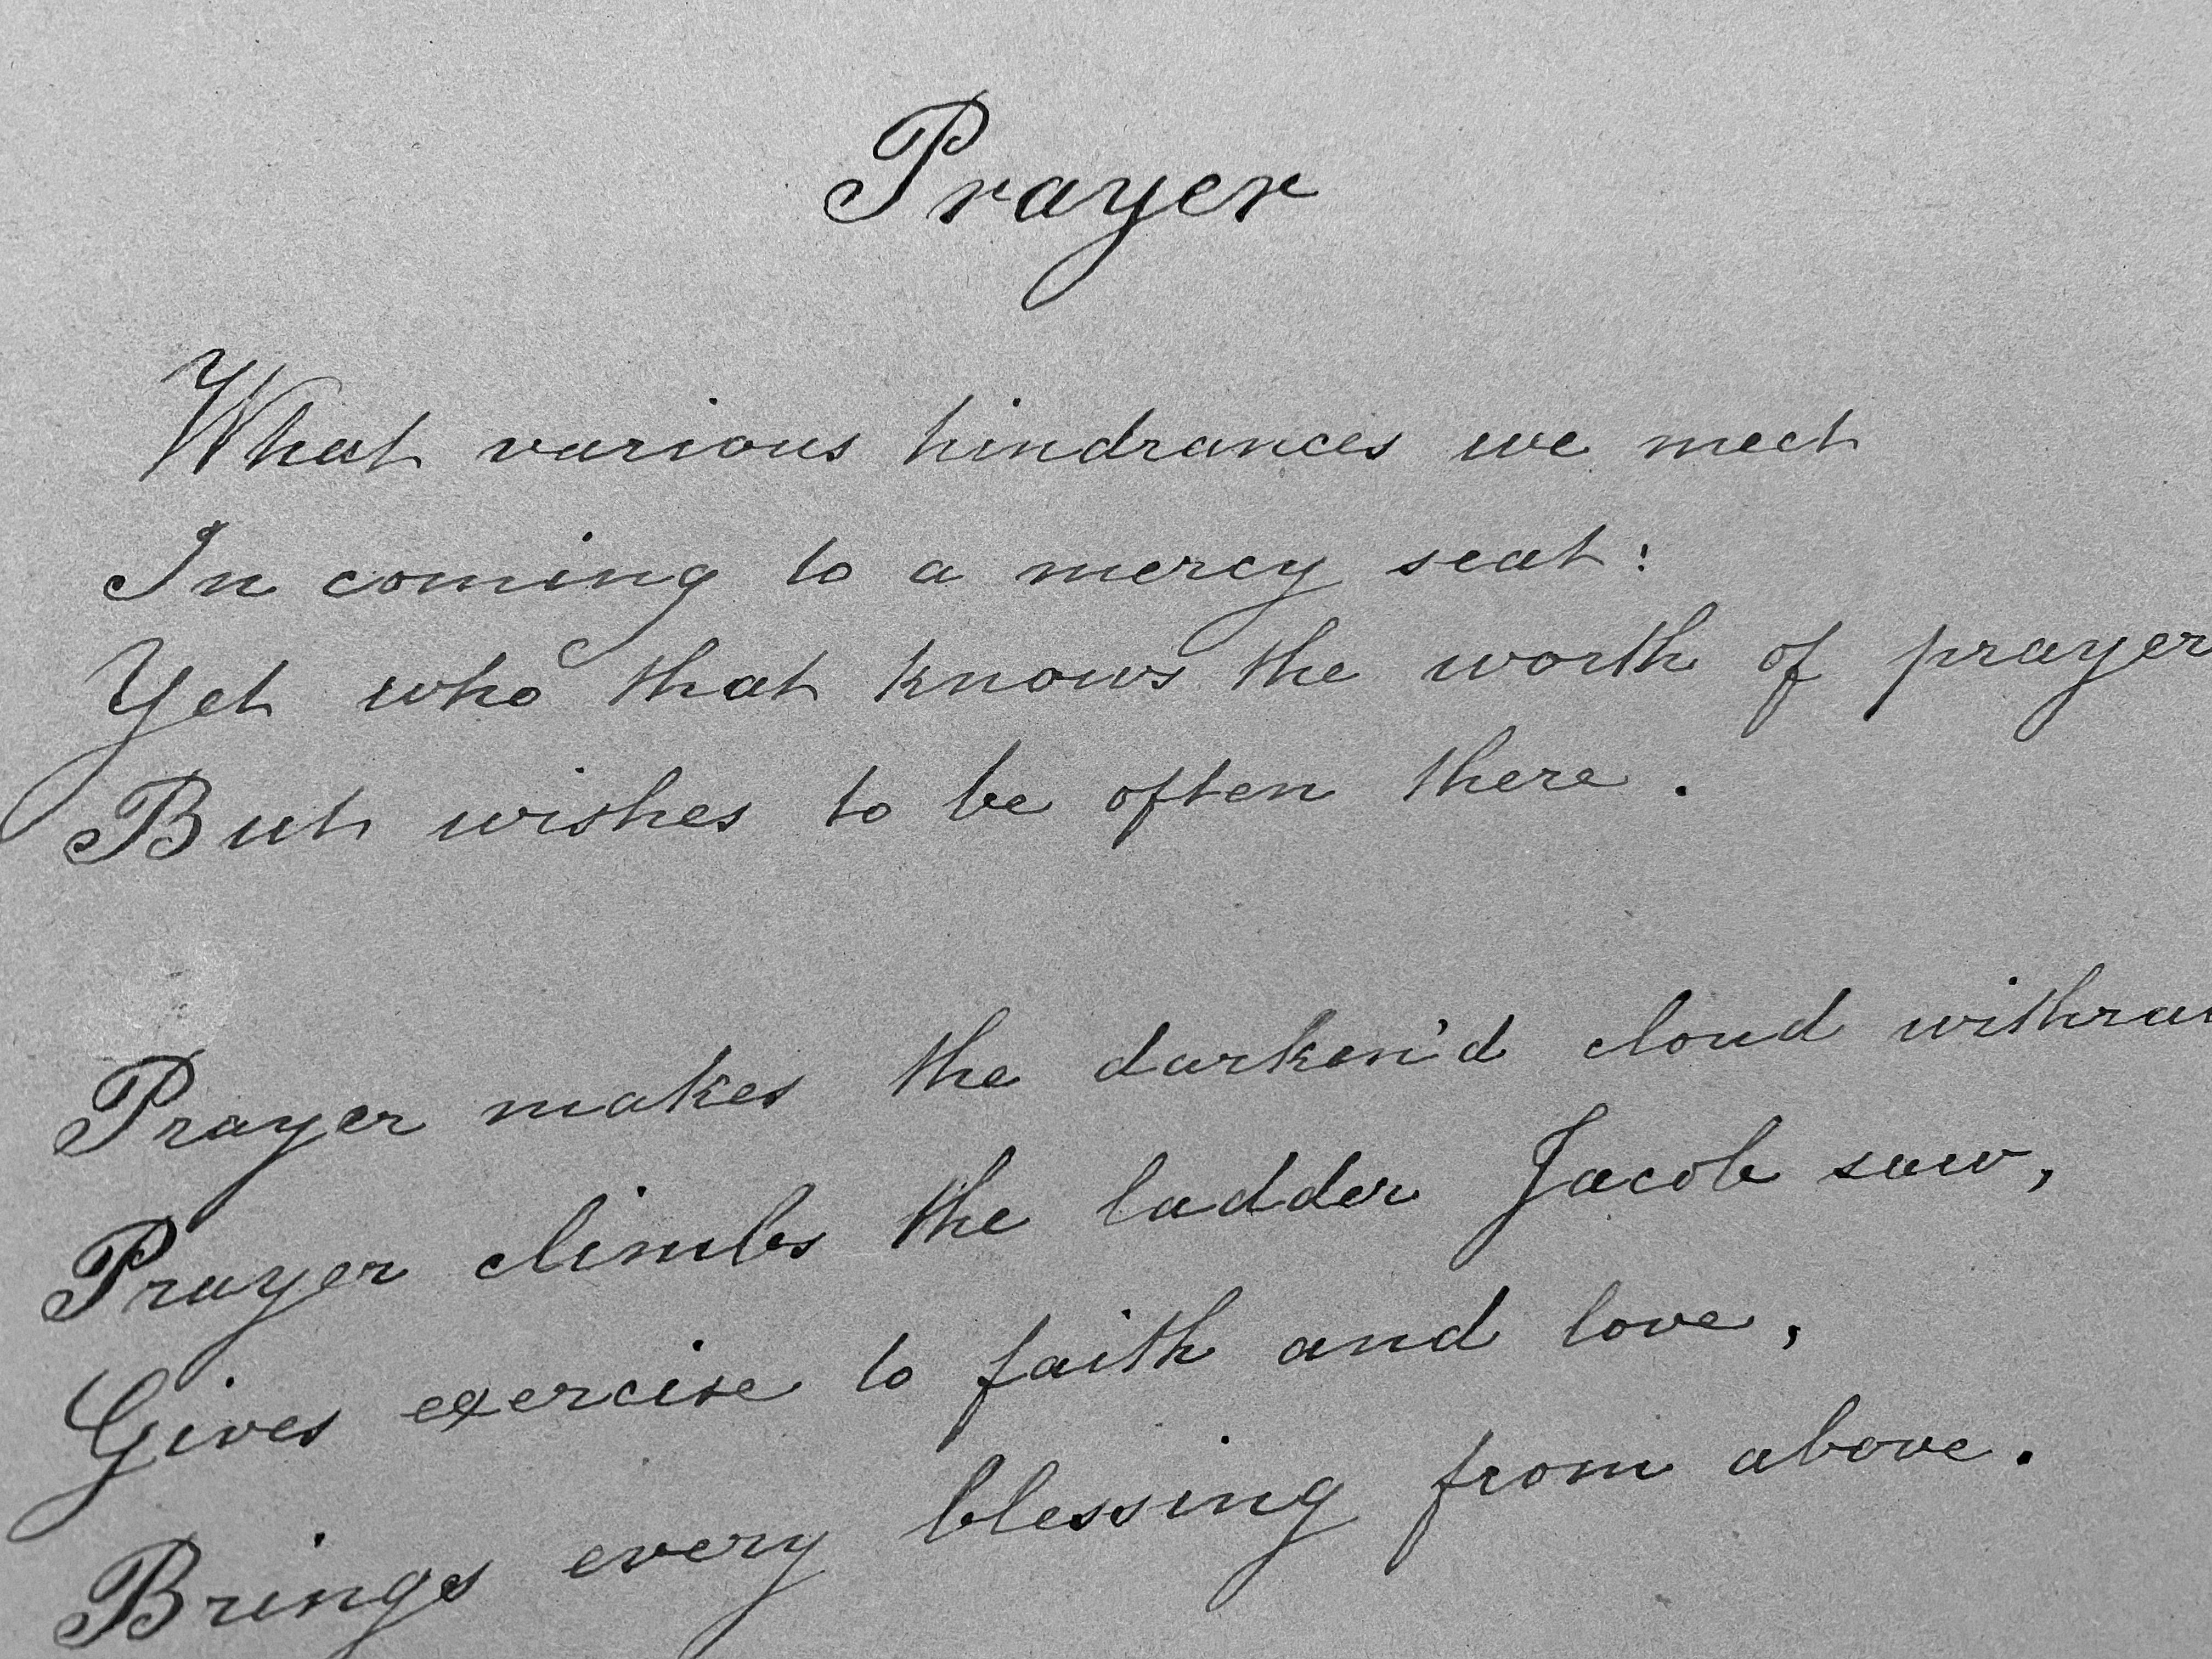 Prayer
What various hindrances we meet
In coming to a mercy seat:
Yet who that knows the worth of prayer
But wishes to be often there.
Prayer makes the darken'd cloud
Prayer climbs the ladder Jacob saw,
Gives exercise to faith and love,
Brings every blessing from above.